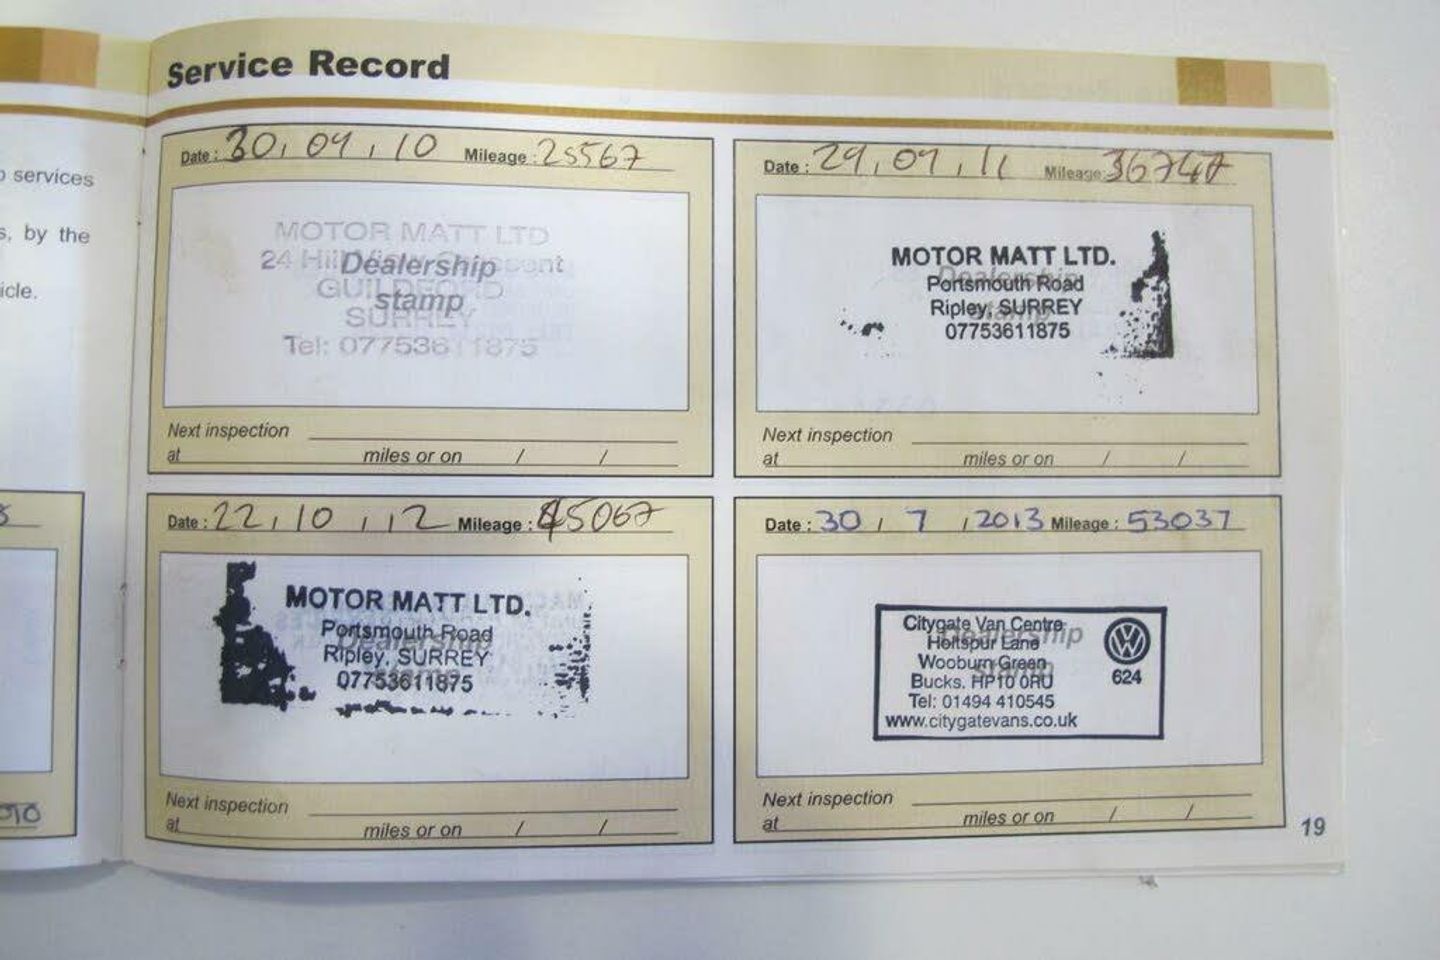 services
s, by the
icle.
Service Record
Date : 30, 09, 10 Mileage : 25567
MOTOR MATT LTD
24 Hill View Crescent
Dealership
GUILDFORD
stamp
SURREY
Tel: 07753611875
Next inspection
at miles or on / /
Date : 29, 09, 11 Mileage:
MOTOR MATT LTD.
Dealership
Portsmouth Road
Ripley, SURREY
stamp
07753611875
Next inspection
at miles or on / /
Date : 22, 10, 12 Mileage : 45067
MOTOR MATT LTD.
Portsmouth Road
Dealership
Ripley, SURREY
stamp
07753611875
Next inspection
at miles or on / /
Date : 30 / 7 / 2013 Mileage : 53037
Citygate Van Centre
Dealership
Holtspur Lane
Wooburn Green
stamp
Bucks. HP10 0RU
624
Tel: 01494 410545
www.citygatevans.co.uk
Next inspection
at miles or on / /
19